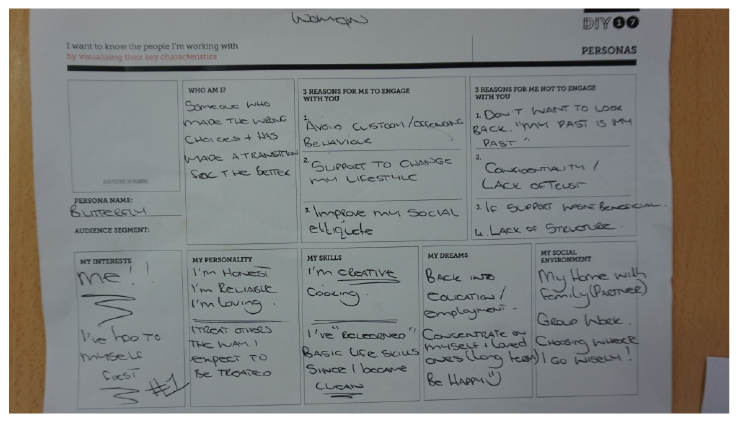 Woman
DIY 17
I want to know the people I'm working with
by visualising their key characteristics
PERSONAS
PERSONA NAME:
BUTTERFLY
AUDIENCE SEGMENT:
WHO AM I?
SOMEONE WHO
MADE THE WRONG
CHOICES + HAS
MADE A TRANSITION
FOR THE BETTER
3 REASONS FOR ME TO ENGAGE
WITH YOU
1.
AVOID CUSTODY/OFFENDING
BEHAVIOUR
2. SUPPORT TO CHANGE
MY LIFESTYLE
3. Improve my SOCIAL
ettiquete
3 REASONS FOR ME NOT TO ENGAGE
WITH YOU
1. DON'T WANT TO LOOK
BACK. "MY PAST IS MY
PAST"
2.
CONFIDENTIALITY /
LACK OF TRUST
3. IF SUPPORT WASNT BENEFICIAL.
4. LACK OF STRUCTURE.
MY INTERESTS
me!!
I've had TO
myself
FIRST
#1
MY PERSONALITY
I'm HONEST
I'm RELIABLE
I'm loving.
I TREAT OTHERS
THE WAY I
EXPECT TO
BE TREATED
MY SKILLS
I'm CREATIVE
Cooking.
I'VE "RELEARNED"
BASIC LIFE SKILLS
SINCE I became
CLEAN
MY DREAMS
BACK INTO
EDUCATION/
employment.
CONCENTRATE ON
MYSELF + loved
ones (long term)
Be HAPPY
MY SOCIAL
ENVIRONMENT
My Home with
Family (PARTNER)
GROUP WORK.
CHOOSING WHERE
I GO WISELY!